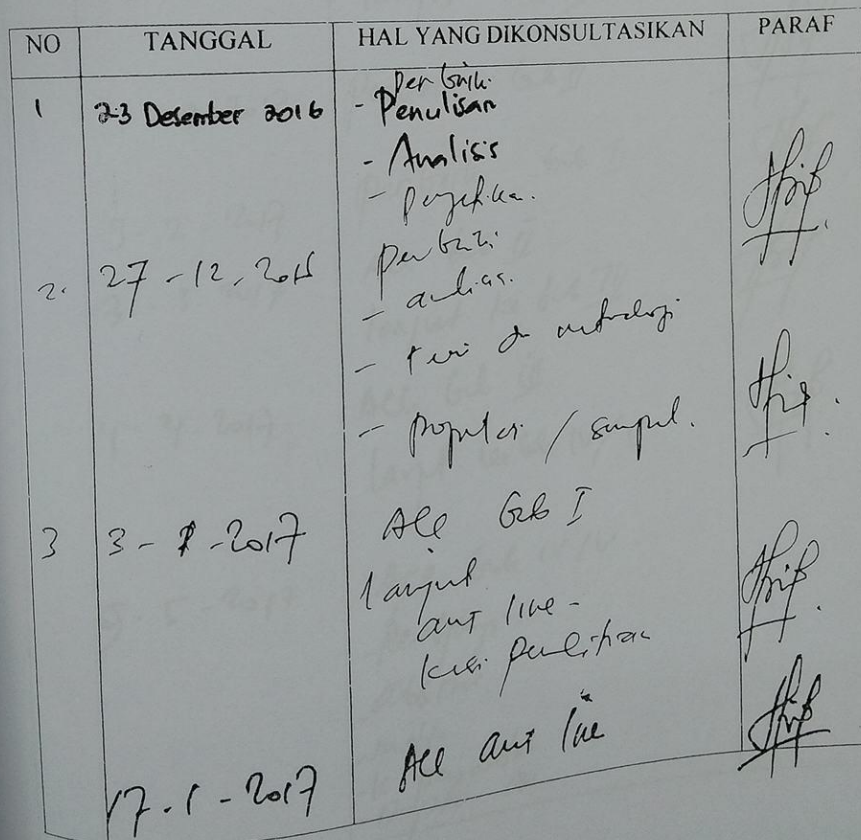 NO TANGGAL HAL YANG DIKONSULTASIKAN PARAF
1 23 Desember 2016 - Penulisan
- Analisis
2. 27 - 12 - 2016
-
- teori dan metodologi
- populasi / sampel.
3 3 - 1 - 2017 Acc Bab I
lanjut
out line -
penelitian
17 - 1 - 2017 Acc out line